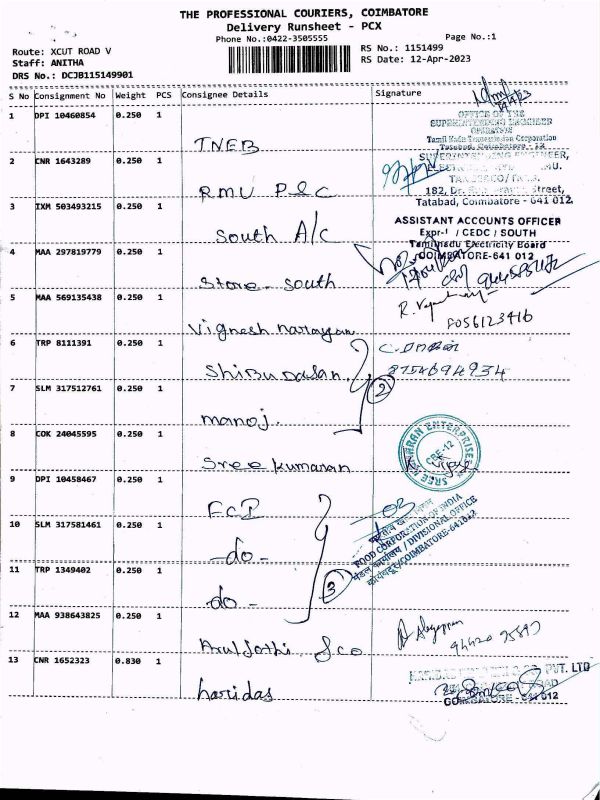 THE PROFESSIONAL COURIERS, COIMBATORE
Delivery Runsheet - PCX
Phone No.:0422-3505555
Page No.:1
Route: XCUT ROAD V
RS No.: 1151499
Staff: ANITHA
RS Date: 12-Apr-2023
DRS No.: DCJB115149901
S No Consignment No Weight PCS Consignee Details Signature
1 DPI 10460854 0.250 1 TNEB
OFFICE OF THE
SUPERINTENDING ENGINEER
OPERATION
Tamil Nadu Transmission Corporation
Tatabad, Coimbatore - 12
2 CNR 1643289 0.250 1 RMU P&C
SUPERINTENDING ENGINEER,
182, Dr. Street,
Tatabad, Coimbatore - 641 012.
3 IXM 503493215 0.250 1 South A/c
ASSISTANT ACCOUNTS OFFICER
Expr-I / CEDC / SOUTH
Tamilnadu Electricity Board
COIMBATORE-641 012
4 MAA 297819779 0.250 1 Store South
5 MAA 569135438 0.250 1 Vignesh narayan
8056123416
6 TRP 8111391 0.250 1 Shibu Dasan
8754694934
2
7 SLM 317512761 0.250 1 manoj.
8 COK 24045595 0.250 1 Sree kumaran
SREE KUMARAN ENTERPRISES
CBE-12
9 DPI 10458467 0.250 1 FCI
FOOD CORPORATION OF INDIA
DIVISIONAL OFFICE
COIMBATORE-641012
10 SLM 317581461 0.250 1 -do-
11 TRP 1349402 0.250 1 do-
3
12 MAA 938643825 0.250 1 Arul Jothi &co
13 CNR 1652323 0.830 1 haridas
PVT. LTD
COIMBATORE - 641 012